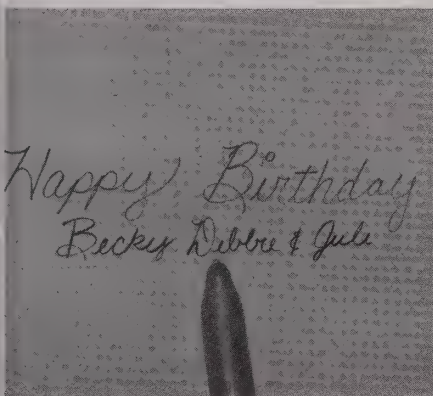 Happy Birthday
Becky Debbie & Juli